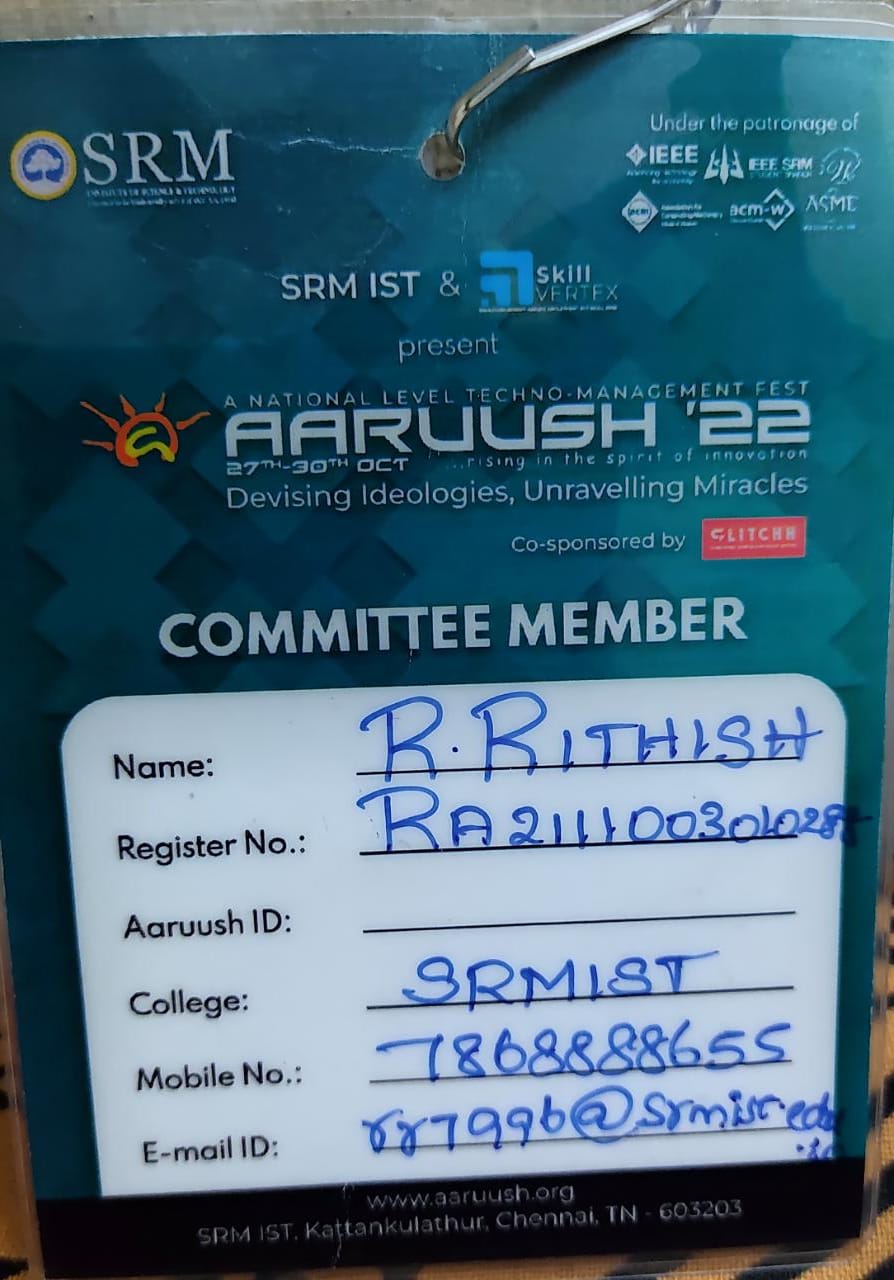 SRM
INSTITUTE OF SCIENCE & TECHNOLOGY
Under the patronage of
IEEE
IEEE SRM
acm
acm-w
ASME
SRM IST & Skill VERTEX
present
A NATIONAL LEVEL TECHNO-MANAGEMENT FEST
AARUUSH '22
27TH-30TH OCT ...rising in the spirit of innovation
Devising Ideologies, Unravelling Miracles
Co-sponsored by GLITCHH
COMMITTEE MEMBER
Name: R. RITHISH
Register No.:
Aaruush ID:
College: SRMIST
Mobile No.: 7868888655
E-mail ID: rr7996@srmist.edu
.in
www.aaruush.org
SRM IST, Kattankulathur, Chennai, TN - 603203